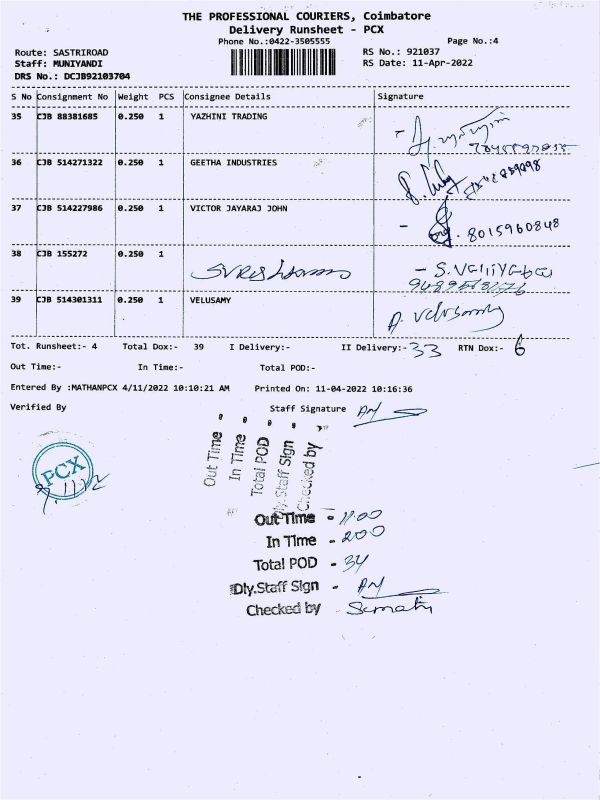 THE PROFESSIONAL COURIERS, Coimbatore
Delivery Runsheet - PCX
Phone No.:0422-3505555 Page No.:4
Route: SASTRIROAD RS No.: 921037
Staff: MUNIYANDI RS Date: 11-Apr-2022
DRS No.: DCJB92103704
S No Consignment No Weight PCS Consignee Details Signature
35 CJB 88381685 0.250 1 YAZHINI TRADING
36 CJB 514271322 0.250 1 GEETHA INDUSTRIES
37 CJB 514227986 0.250 1 VICTOR JAYARAJ JOHN
- 8015960848
38 CJB 155272 0.250 1
39 CJB 514301311 0.250 1 VELUSAMY A. Velusamy
Tot. Runsheet:- 4 Total Dox:- 39 I Delivery:- II Delivery:- 33 RTN Dox:- 6
Out Time:- In Time:- Total POD:-
Entered By :MATHANPCX 4/11/2022 10:10:21 AM Printed On: 11-04-2022 10:16:36
Verified By Staff Signature
Out Time
In Time
Total POD
Dly.Staff Sign
Checked by
PCX
Out Time - 11.00
In Time - 200
Total POD - 34
Dly.Staff Sign -
Checked by -